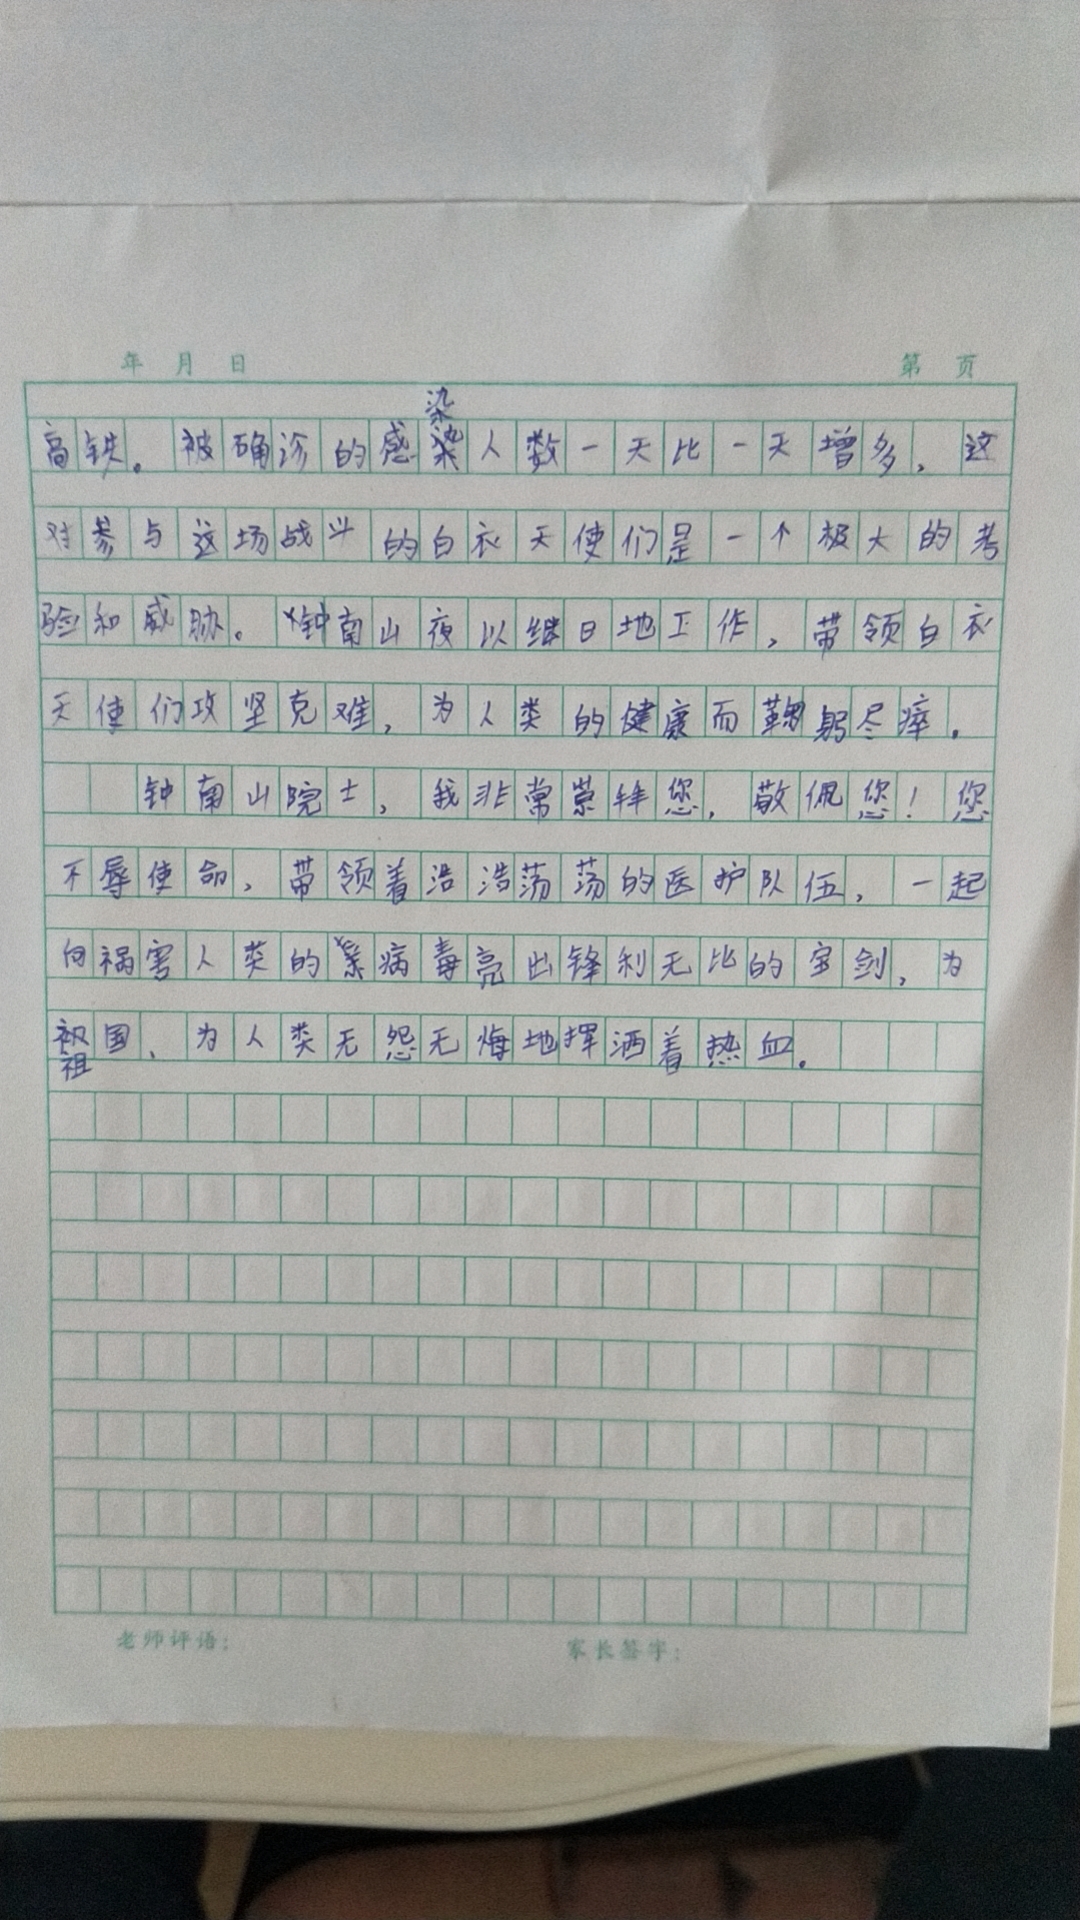 年 月 日 第 页
染
高铁。被确诊的感染人数一天比一天增多，这
对参与这场战斗的白衣天使们是一个极大的考
验和威胁。钟南山夜以继日地工作，带领白衣
天使们攻坚克难，为人类的健康而鞠躬尽瘁。
钟南山院士，我非常崇拜您，敬佩您！您
不辱使命，带领着浩浩荡荡的医护队伍，一起
向祸害人类的病毒亮出锋利无比的宝剑，为
国、为人类无怨无悔地挥洒着热血。
祖
老师评语： 家长签字：